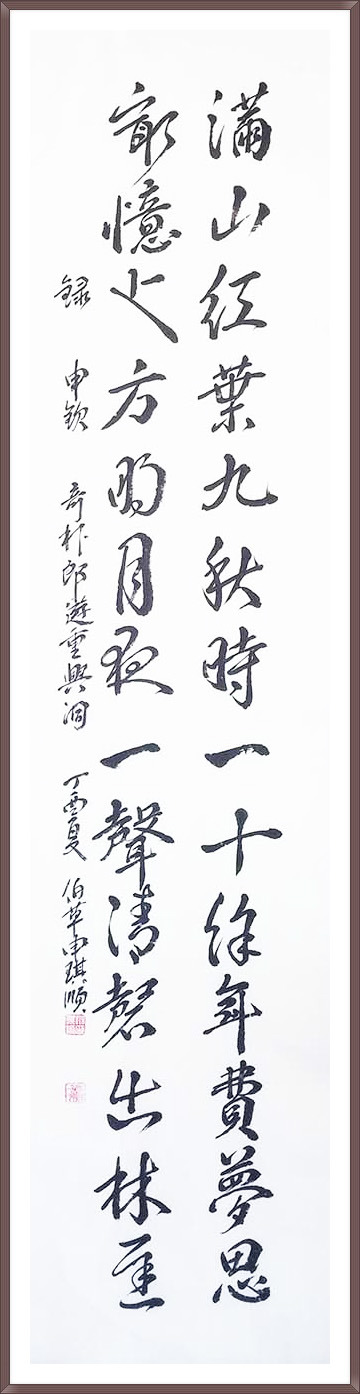 滿山紅葉九秋時一十餘年費夢思
最憶上方明月夜一聲清磬出林遲
錄 申欽 奇朴郎遊重興洞 丁酉夏 伯草申琪順